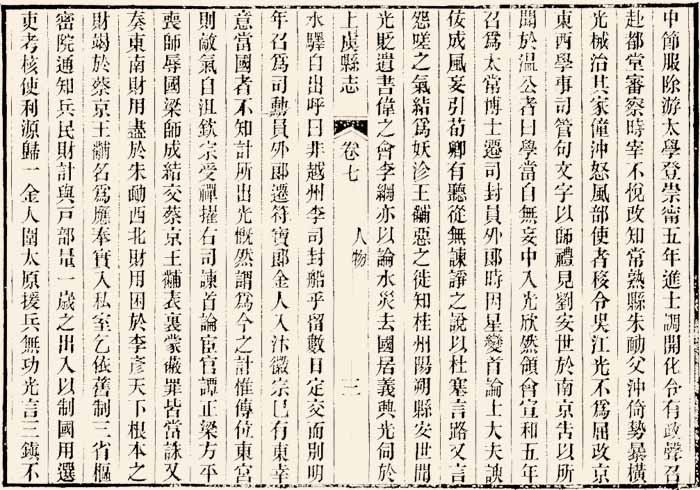 中節服除游太學登崇甯五年進士調開化令有政聲召
赴都堂審察時宰不悅改知常熟縣朱勔父沖倚勢暴橫
光械治其家僮沖怒風部使者移令吳江光不爲屈改京
東西學事司管句文字以師禮見劉安世於南京告以所
聞於溫公者曰學當自無妄中入光欣然領會宣和五年
召爲太常博士遷司封員外郎時因星變首論士大夫諛
佞成風妄引荀卿有聽從無諫諍之說以杜塞言路又言
怨嗟之氣結爲妖沴王黼惡之徙知桂州陽朔縣安世聞
光貶遺書偉之會李綱亦以論水災去國居義興光伺於
上虞縣志
卷七
人物
三
水驛自出呼曰非越州李司封船乎留數日定交而別明
年召爲司勳員外郎遷符寶郎金人入汴徽宗已有東幸
意當國者不知計所出光慨然謂爲今之計惟傳位東宮
則敵氣自沮欽宗受禪擢右司諫首論宦官譚正梁方平
喪師辱國梁師成結交蔡京王黼表裏蒙蔽罪皆當誅又
奏東南財用盡於朱勔西北財用困於李彥天下根本之
財竭於蔡京王黼名爲應奉實入私室乞依舊制三省樞
密院通知兵民財計與戸部量一歲之出入以制國用選
吏考核使利源歸一金人圍太原援兵無功光言三鎮不